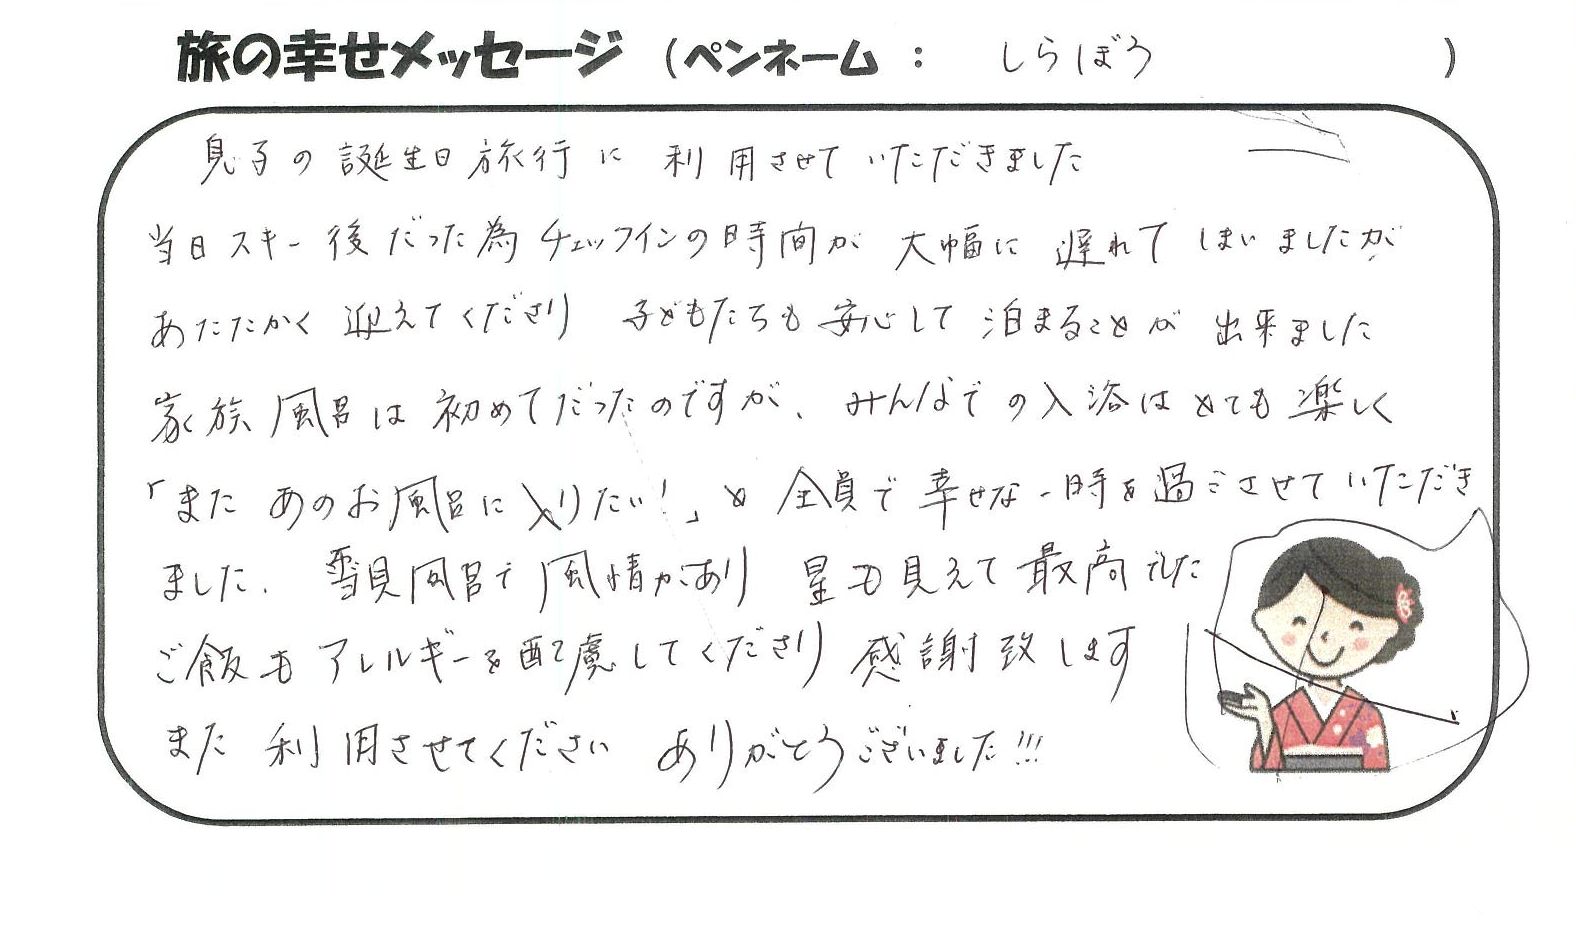 旅の幸せメッセージ (ペンネーム : しらぼう )
息子の誕生日旅行に利用させていただきました
当日スキー後だった為チェックインの時間が大幅に遅れてしまいましたが
あたたかく迎えてくださり 子どもたちも安心して泊まることが出来ました
家族風呂は初めてだったのですが、みんなでの入浴はとても楽しく
「またあのお風呂に入りたい!」と全員で幸せな一時を過ごさせていただき
ました。雪見風呂で風情があり 星も見えて最高でした
ご飯もアレルギーを配慮してくださり感謝致します
また利用させてください ありがとうございました!!!